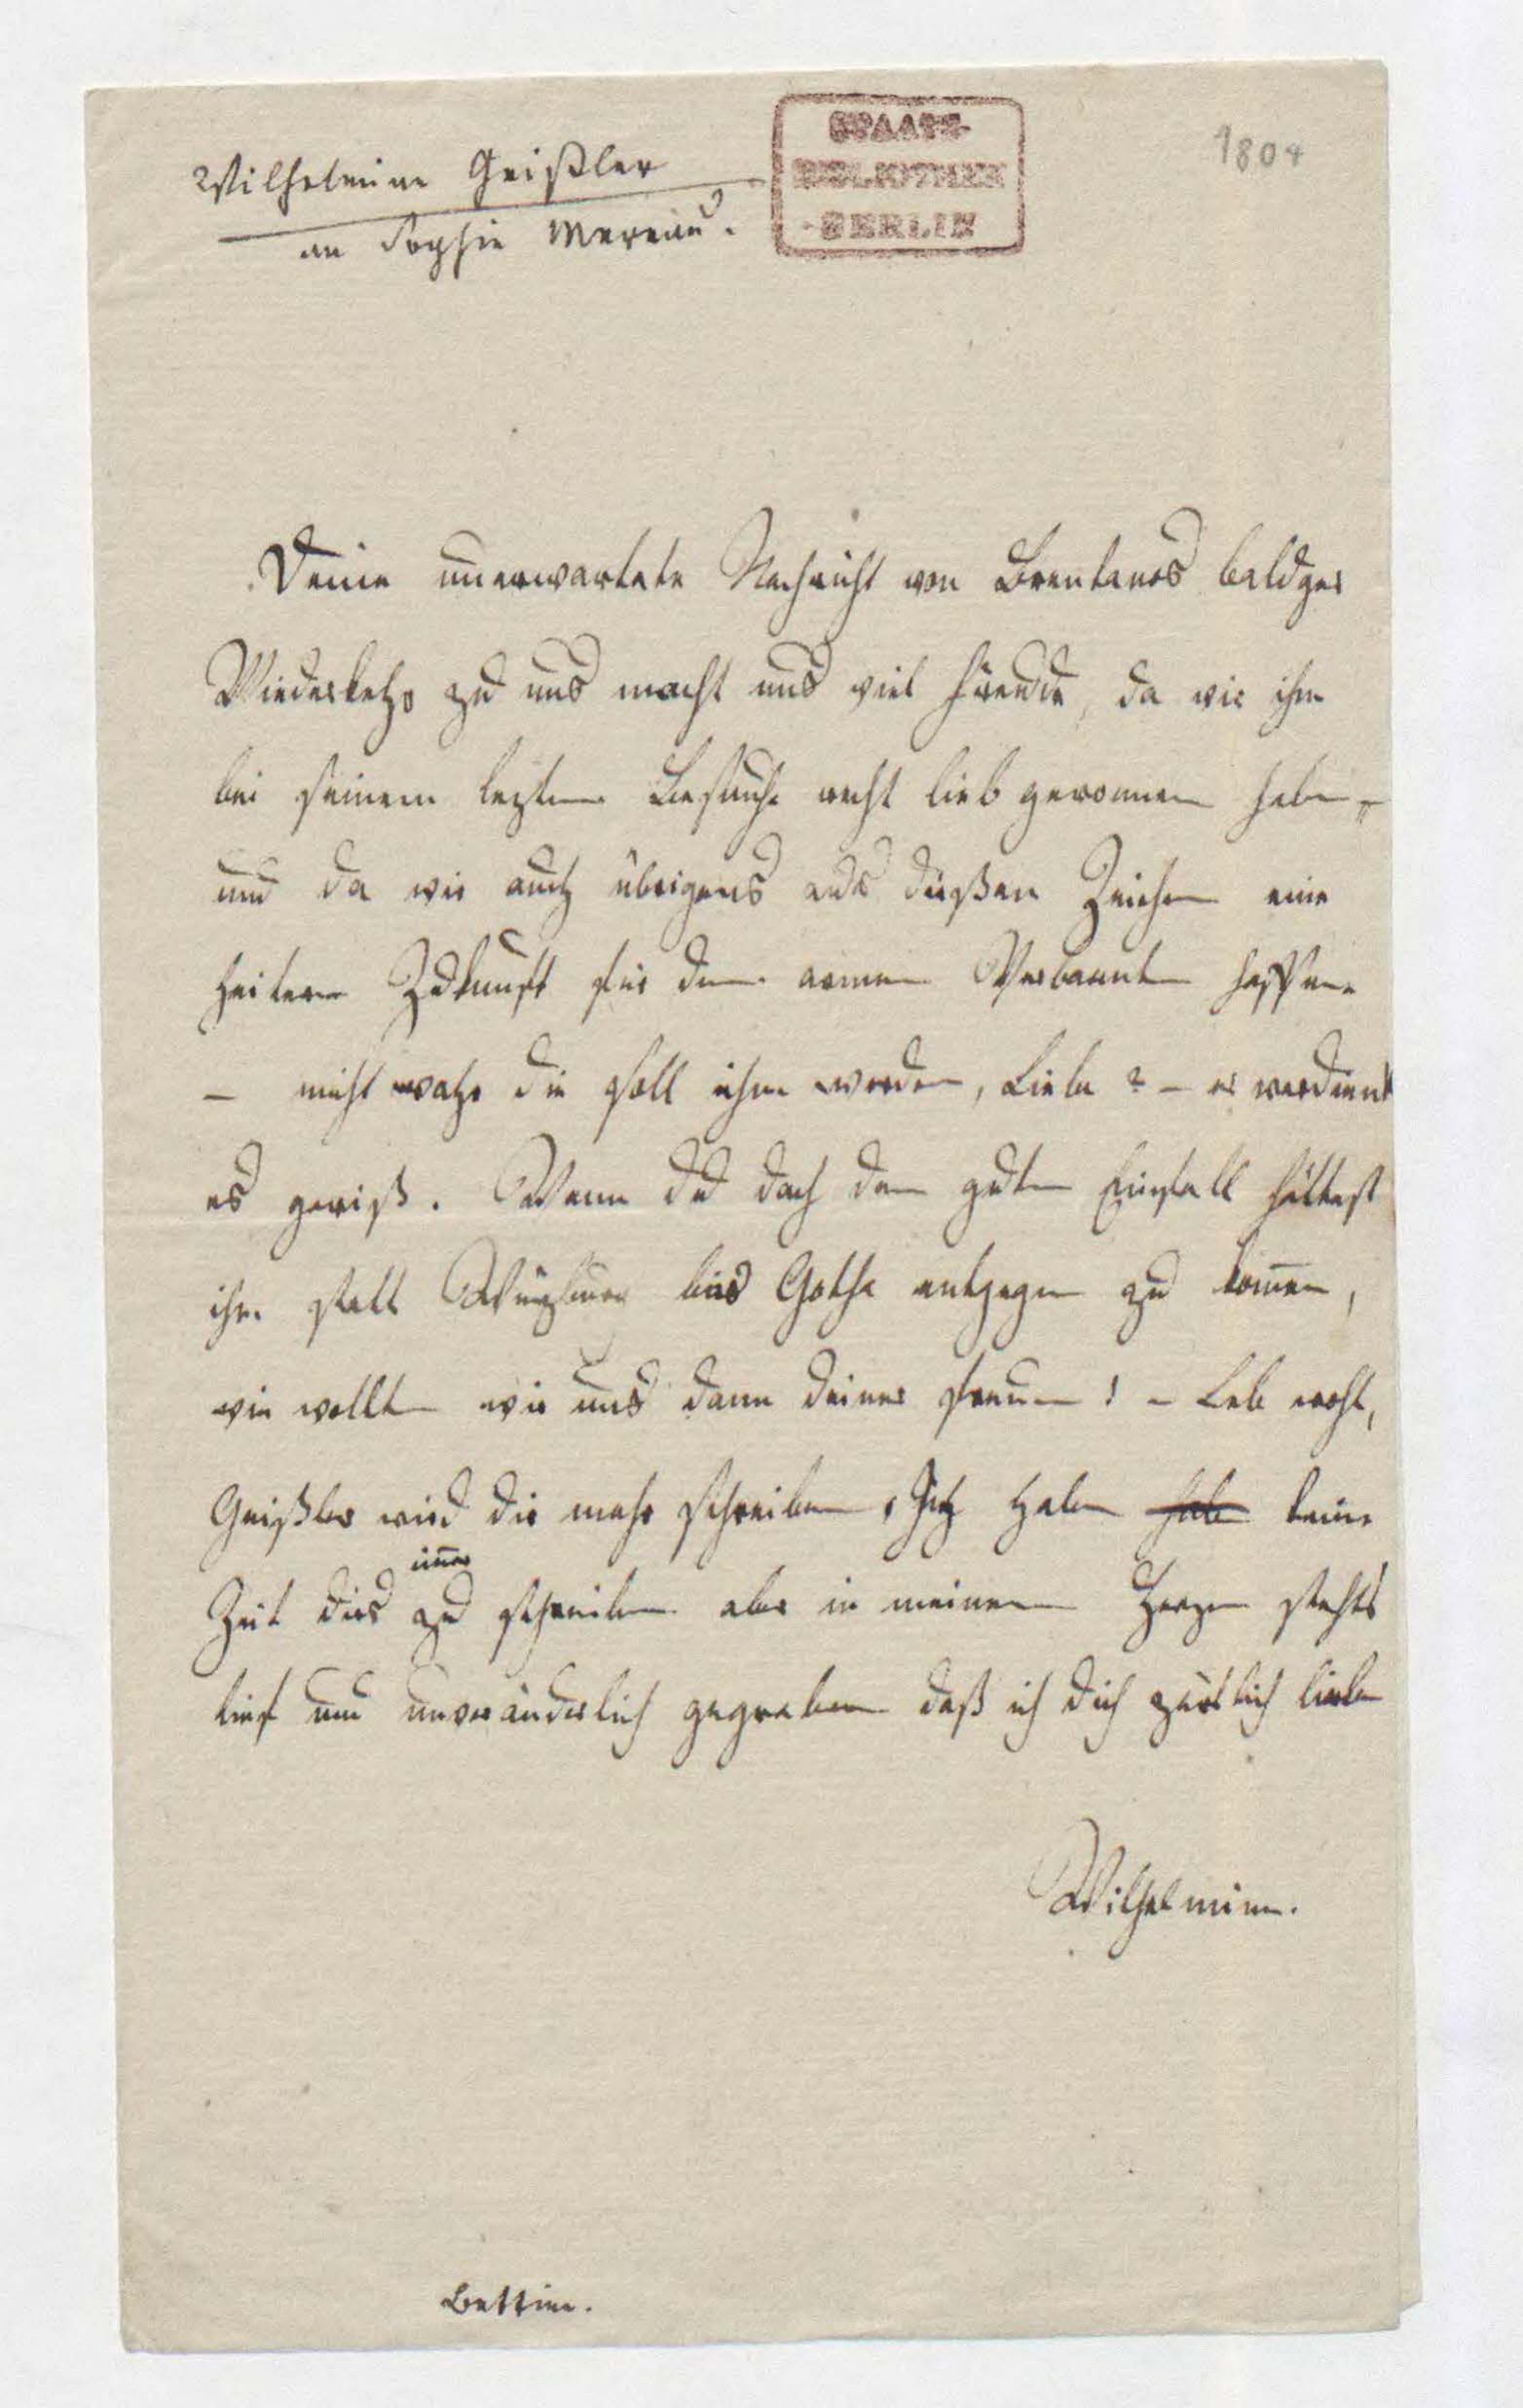 Wilhelmine Geißler
an Sophie Mereau.
STAATS-
BIBLIOTHEK
BERLIN
1804
Deine unerwartete Nachricht von Brentanos baldger
Wiederkehr zu uns macht uns viel Freude, da wir ihn
bei seinem lezten Besuche recht lieb gewonnen haben
und da wir auch übrigens aus diesem Zeichen eine
heitere Zukunft für den armen Verbannten hoffen
– nicht wahr die soll ihm werden, Liebe? – er verdient
es gewiß. Wenn du doch den guten Einfall hättest
ihn statt bis Gotha entgegen zu komen,
wie wollten wir uns dann deiner freuen! – Leb wohl,
Geißler wird dir mehr schreiben, Ich habe habe keine
imer
Zeit dirs zu schreiben aber in meinem Herzen stehts
tief und unveränderlich gegraben daß ich dich zärtlich liebe
Wilhelmine.
Bettine.